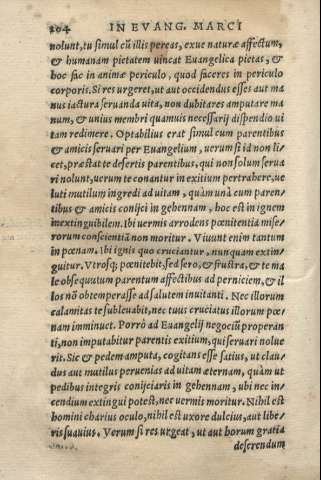 204 IN EVANG. MARCI
nolunt, tu simul cũ illis pereas, exue naturæ affectum,
& humanam pietatem uincat Euangelica pietas, &
hoc fac in animæ periculo, quod faceres in periculo
corporis. Si res urgeret, ut aut occidendus esses aut ma
nus iactura seruanda uita, non dubitares amputare ma
num, & unius membri quamuis necessarij dispendio ui
tam redimere. Optabilius erat simul cum parentibus
& amicis seruari per Euangelium, uerum si id non li
cet, præstat te desertis parentibus, qui non solum serua
ri nolunt, uerum te conantur in exitium pertrahere, ue
luti mutilum ingredi ad uitam, quàm unà cum paren-
tibus & amicis conijci in gehennam, hoc est in ignem
inextinguibilem. Ibi uermis arrodens pœnitentia mise-
rorum conscientiã non moritur. Viuunt enim tantum
in pœnam. Ibi ignis quo cruciantur, nunquam extin-
guitur. Vtrosq; pœnitebit, sed sero, & frustra, & te ma
le obsequutum parentum affectibus ad perniciem, & il
los nõ obtemperasse ad salutem inuitanti. Nec illorum
calamitas te subleuabit, nec tuus cruciatus illorum pœ-
nam imminuet. Porrò ad Euangelij negociũ properan
ti, non imputabitur parentis exitium, qui seruari nolue
rit. Sic & pedem amputa, cogitans esse satius, ut clau-
dus aut mutilus peruenias ad uitam æternam, quàm ut
pedibus integris conijciaris in gehennam, ubi nec in-
cendium extingui potest, nec uermis moritur. Nihil est
homini charius oculo, nihil est uxore dulcius, aut libe-
ris suauius. Verum si res urgeat, ut aut horum gratia
deserendum